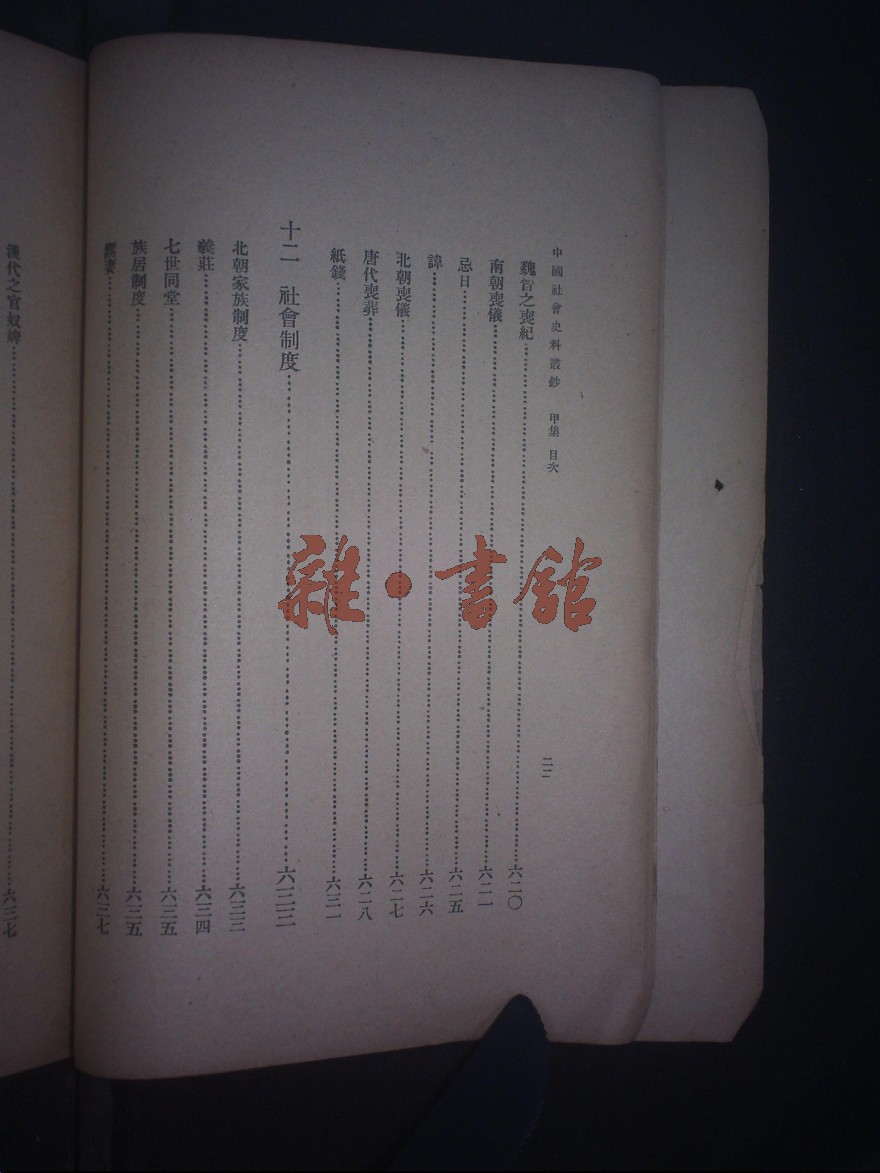 中國社會史料叢鈔 甲集 目次 二二
魏晉之喪紀 六二〇
南朝喪儀 六二一
忌日 六二五
諱 六二六
北朝喪儀 六二七
唐代喪葬 六二八
紙錢 六三一
十二 社會制度 六三三
北朝家族制度 六三三
義莊 六三四
七世同堂 六三五
族居制度 六三五
六三七
漢代之官奴婢 六三七
雜·書館